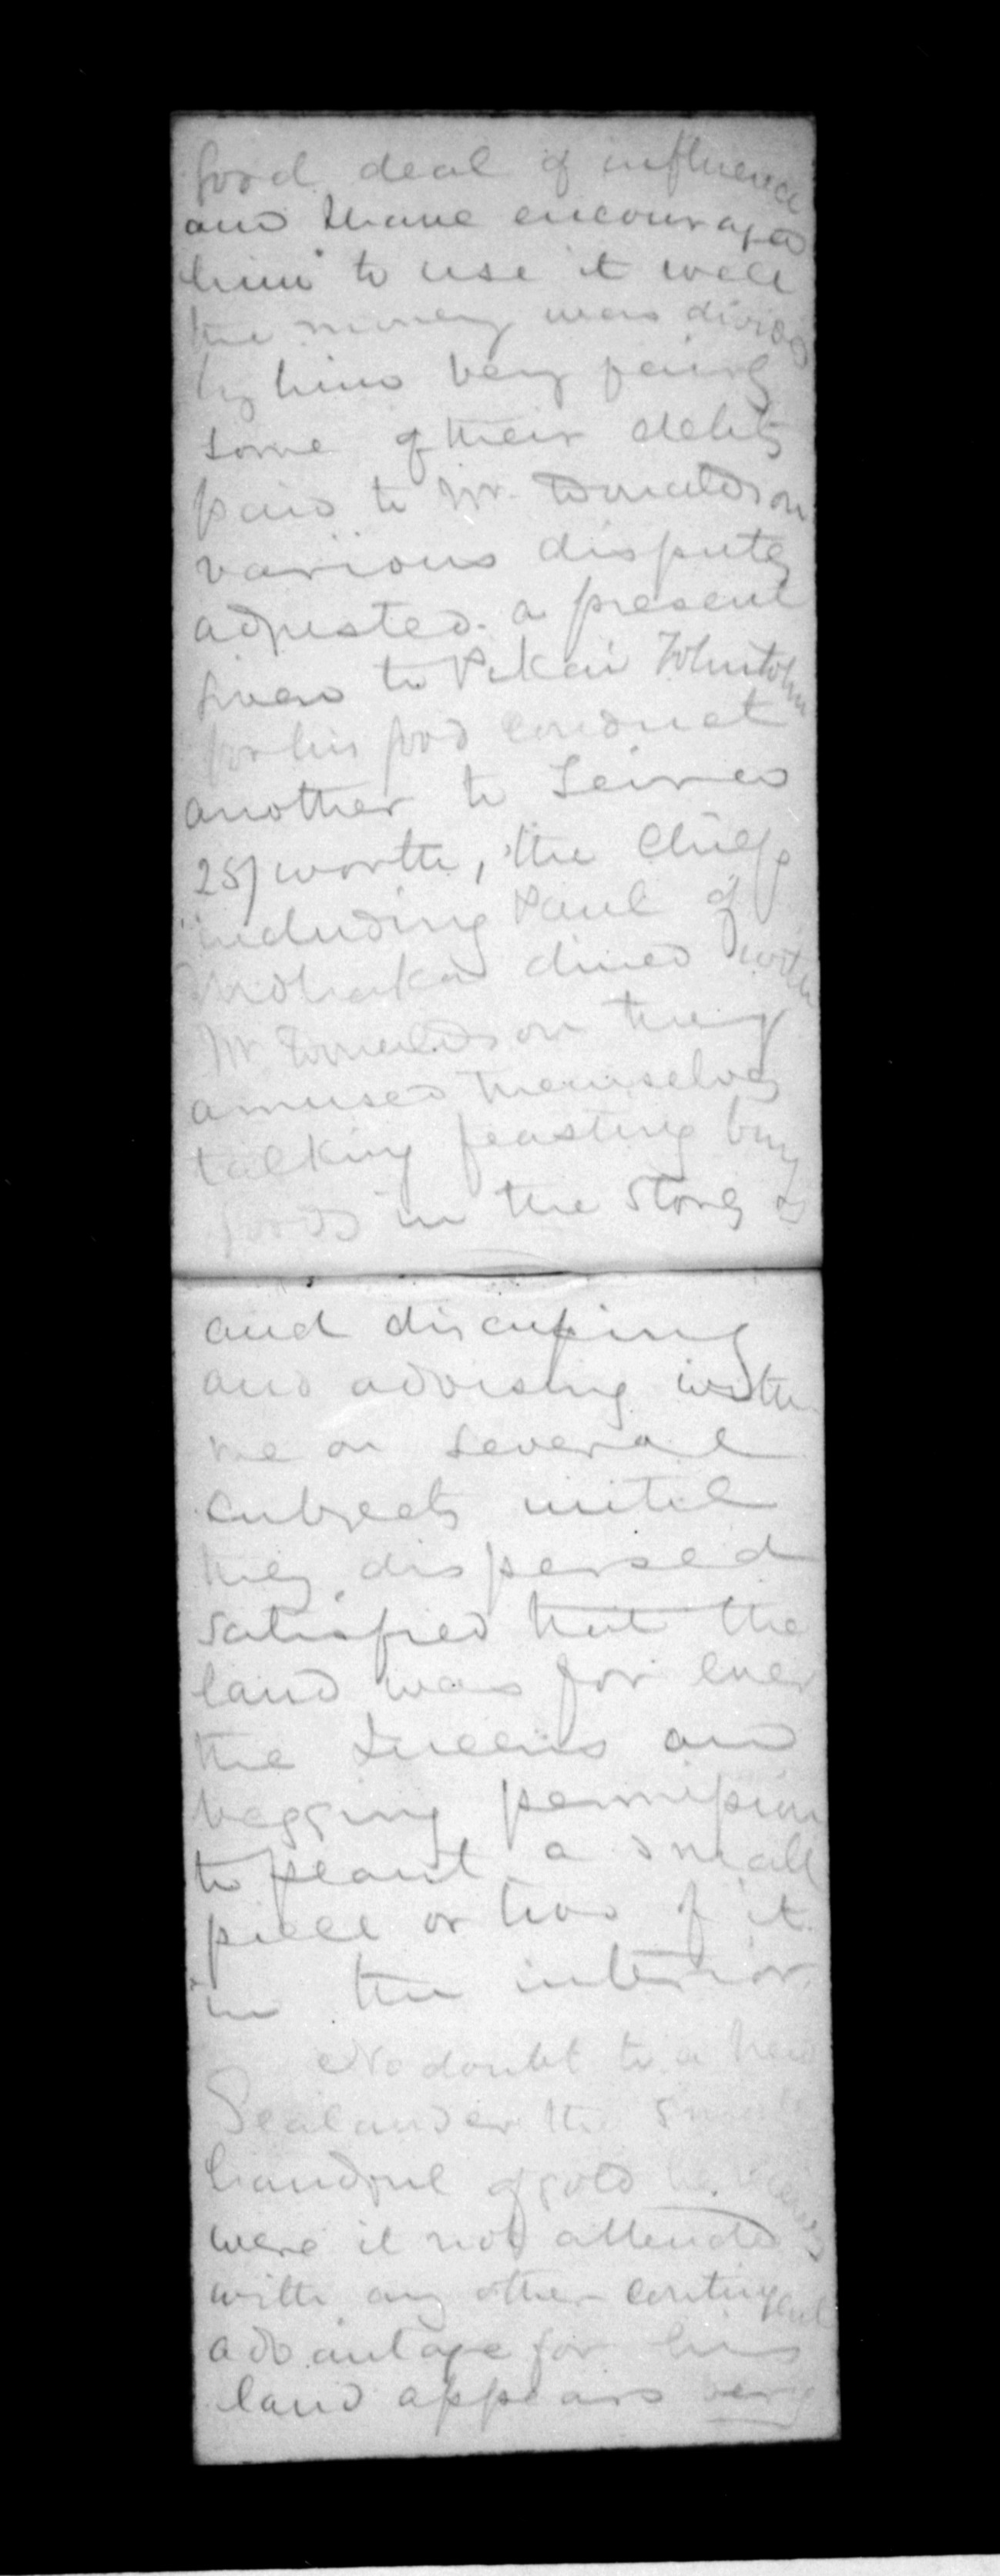 good deal of influence
and I have encouraged
him to use it well
the money was divided
by him very fairly
some of their debts
paid to Mr. Donaldson
various disputes
adjusted. a present
given to
for his good conduct
another to
25/ worth, the Chiefs
including Paul of
Mohaka dined with
Mr Donaldson they
amused themselves
talking feasting buy
goods in the Stores
and discussing
and advising with
me on several
subjects until
they dispersed
satisfied that the
land was for ever
the Queens and
begging permission
to plant a small
piece or two of it.
in the interior.
No doubt to a New
Zealander the
handful of gold he receives
were it not attended
with any other contingent
advantage for his
land appears very